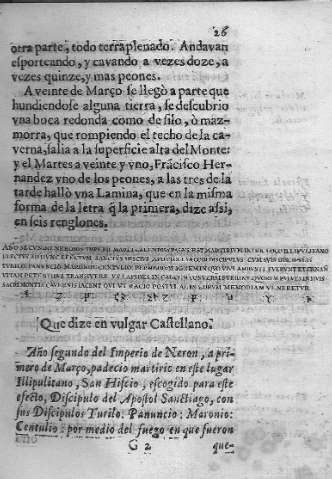 26
otra parte, todo terraplenado. Andavan
esporteando, y cavando a vezes doze, a
vezes quinze, y mas peones.
A veinte de Março se llegò a parte que
hundiendose alguna tierra, se descubrio
vna boca redonda como de silo, ò maz-
morra, que rompiendo el techo de la ca-
verna, salia a la superficie alta del Monte:
y el Martes a veinte y vno, Frãcisco Her-
nandez vno de los peones, a las tres de la
tarde hallò vna Lamina, que en la misma
forma de la letra q̃ la primera, dize assi,
en seis renglones.
Que dize en vulgar Castellano.
Año segundo del Imperio de Neron, a pri-
mero de Março, padecio martirio en este lugar
Illipulitano, San Hiscio, escogido para este
efecto, Discipulo del Apostol Sanctiago, con
sus Discipulos Turilo: Panuncio: Maronio:
Centulio: por medio del fuego en que fueron
G 2 que-